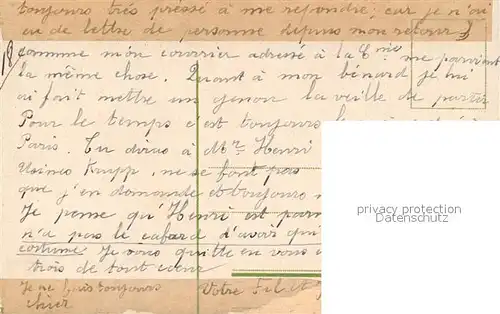 toujours très pressé à me répondre, car je n'ai
eu de lettre de personne depuis mon retour
18
comme mon courrier adressé à la Cnie me parvient
la même chose. Quant à mon bénard je lui
ai fait mettre un genou la veille de partir
Pour le temps c'est toujours
Paris. Tu diras à Mr Henri
Usines Krupp, ne se font pas
que j'en demande et toujours
Je pense qu'Henri est
n'a pas le cafard d'avoir
costume Je vous quitte en vous
trois de tout cœur
Je ne suis toujours
Votre Fils
privacy protection
Datenschutz